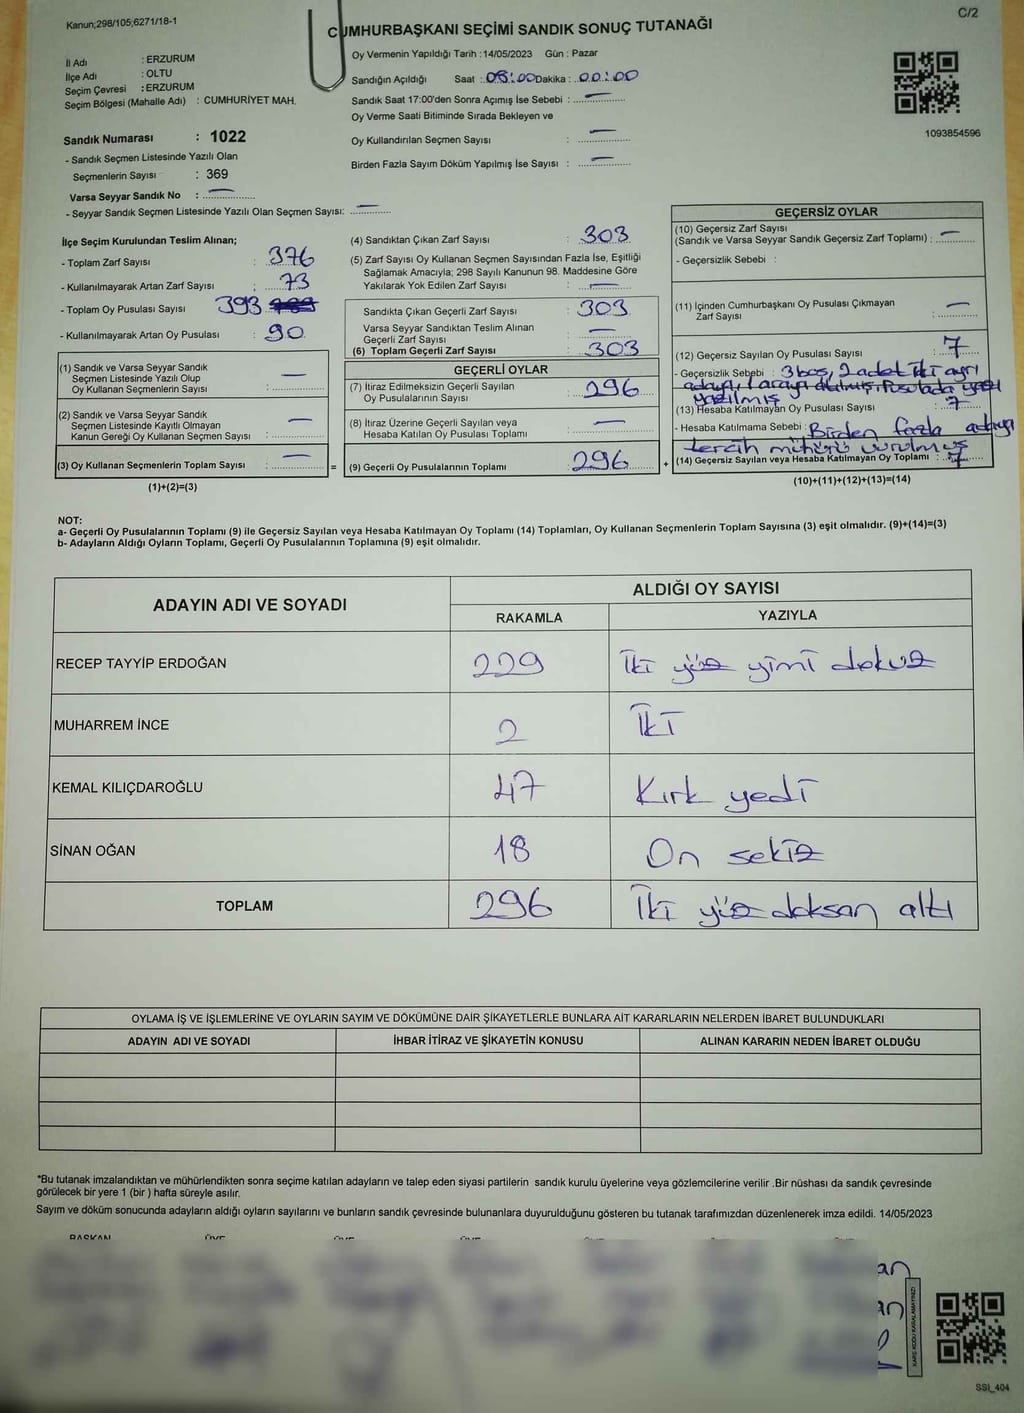 Kanun;298/105;6271/18-1
C/2
CUMHURBAŞKANI SEÇİMİ SANDIK SONUÇ TUTANAĞI
İl Adı : ERZURUM
İlçe Adı : OLTU
Seçim Çevresi : ERZURUM
Seçim Bölgesi (Mahalle Adı) : CUMHURİYET MAH.
Sandık Numarası : 1022
- Sandık Seçmen Listesinde Yazılı Olan
Seçmenlerin Sayısı : 369
Varsa Seyyar Sandık No : —
- Seyyar Sandık Seçmen Listesinde Yazılı Olan Seçmen Sayısı: —
Oy Vermenin Yapıldığı Tarih : 14/05/2023 Gün : Pazar
Sandığın Açıldığı Saat : 08:00 Dakika : 00:00
Sandık Saat 17:00'den Sonra Açımış İse Sebebi : —
Oy Verme Saati Bitiminde Sırada Bekleyen ve
Oy Kullandırılan Seçmen Sayısı : —
Birden Fazla Sayım Döküm Yapılmış İse Sayısı : —
1093854596
İlçe Seçim Kurulundan Teslim Alınan;
- Toplam Zarf Sayısı : 376
- Kullanılmayarak Artan Zarf Sayısı : 73
- Toplam Oy Pusulası Sayısı 393
- Kullanılmayarak Artan Oy Pusulası : 90
(1) Sandık ve Varsa Seyyar Sandık
Seçmen Listesinde Yazılı Olup
Oy Kullanan Seçmenlerin Sayısı : —
(2) Sandık ve Varsa Seyyar Sandık
Seçmen Listesinde Kayıtlı Olmayan
Kanun Gereği Oy Kullanan Seçmen Sayısı : —
(3) Oy Kullanan Seçmenlerin Toplam Sayısı : —
(1)+(2)=(3)
=
(4) Sandıktan Çıkan Zarf Sayısı : 303
(5) Zarf Sayısı Oy Kullanan Seçmen Sayısından Fazla İse, Eşitliği
Sağlamak Amacıyla; 298 Sayılı Kanunun 98. Maddesine Göre
Yakılarak Yok Edilen Zarf Sayısı : —
Sandıkta Çıkan Geçerli Zarf Sayısı : 303
Varsa Seyyar Sandıktan Teslim Alınan
Geçerli Zarf Sayısı : —
(6) Toplam Geçerli Zarf Sayısı : 303
GEÇERLİ OYLAR
(7) İtiraz Edilmeksizin Geçerli Sayılan
Oy Pusulalarının Sayısı : 296
(8) İtiraz Üzerine Geçerli Sayılan veya
Hesaba Katılan Oy Pusulası Toplamı : —
(9) Geçerli Oy Pusulalarının Toplamı : 296
+
GEÇERSİZ OYLAR
(10) Geçersiz Zarf Sayısı
(Sandık ve Varsa Seyyar Sandık Geçersiz Zarf Toplamı) : —
- Geçersizlik Sebebi :
(11) İçinden Cumhurbaşkanı Oy Pusulası Çıkmayan
Zarf Sayısı : —
(12) Geçersiz Sayılan Oy Pusulası Sayısı : 7
- Geçersizlik Sebebi : 3 boş, 2 adet iki ayrı
adaya, 1 araya Pusulada yazı
yazılmış
(13) Hesaba Katılmayan Oy Pusulası Sayısı : 7
- Hesaba Katılmama Sebebi : Birden fazla adaya
tercih mühürü vurulmuş
(14) Geçersiz Sayılan veya Hesaba Katılmayan Oy Toplamı : 7
(10)+(11)+(12)+(13)=(14)
NOT:
a- Geçerli Oy Pusulalarının Toplamı (9) ile Geçersiz Sayılan veya Hesaba Katılmayan Oy Toplamı (14) Toplamları, Oy Kullanan Seçmenlerin Toplam Sayısına (3) eşit olmalıdır. (9)+(14)=(3)
b- Adayların Aldığı Oyların Toplamı, Geçerli Oy Pusulalarının Toplamına (9) eşit olmalıdır.
ADAYIN ADI VE SOYADI ALDIĞI OY SAYISI
RAKAMLA YAZIYLA
RECEP TAYYİP ERDOĞAN 229 İki yüz yimi dokuz
MUHARREM İNCE 2 İki
KEMAL KILIÇDAROĞLU 47 Kırk yedi
SİNAN OĞAN 18 On sekiz
TOPLAM 296 İki yüz doksan altı
OYLAMA İŞ VE İŞLEMLERİNE VE OYLARIN SAYIM VE DÖKÜMÜNE DAİR ŞİKAYETLERLE BUNLARA AİT KARARLARIN NELERDEN İBARET BULUNDUKLARI
ADAYIN ADI VE SOYADI İHBAR İTİRAZ VE ŞİKAYETİN KONUSU ALINAN KARARIN NEDEN İBARET OLDUĞU
*Bu tutanak imzalandıktan ve mühürlendikten sonra seçime katılan adayların ve talep eden siyasi partilerin sandık kurulu üyelerine veya gözlemcilerine verilir .Bir nüshası da sandık çevresinde
görülecek bir yere 1 (bir ) hafta süreyle asılır.
Sayım ve döküm sonucunda adayların aldığı oyların sayılarını ve bunların sandık çevresinde bulunanlara duyurulduğunu gösteren bu tutanak tarafımızdan düzenlenerek imza edildi. 14/05/2023
BAŞKAN ÜYE ÜYE ÜYE ÜYE
KARE KODU KARALAMAYINIZ!
SSI_404